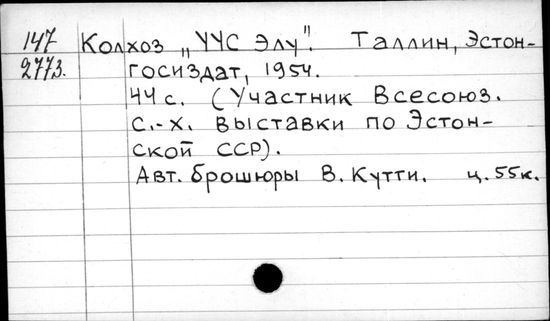 147 Колхоз „УУС Элу". Таллин, Эстон-
2773. госиздат, 1954.
44 с. (Участник Всесоюз.
с.-х. выставки по Эстон-
ской ССР).
Авт. брошюры В. Кутти. ц. 55к.